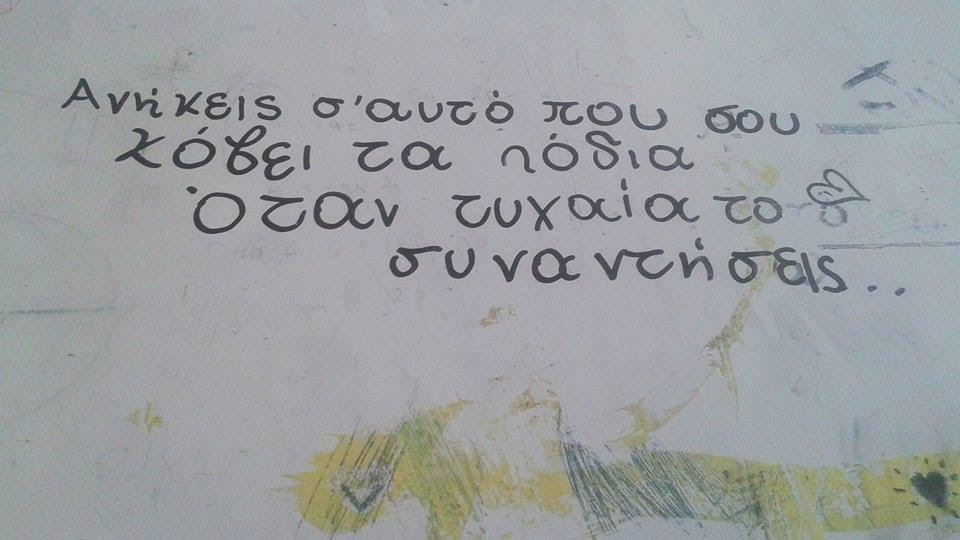 Ανήκεις σ'αυτό που σου
κόβει τα πόδια
Όταν τυχαία το
συναντήσεις..